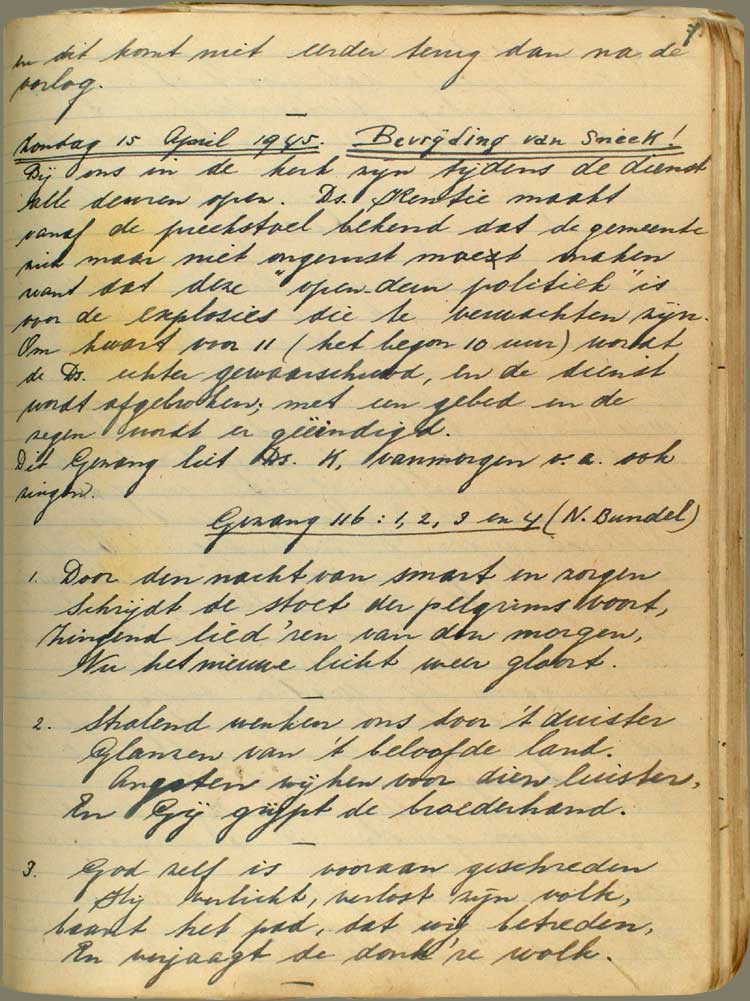 en dit komt niet eerder terug dan na de
oorlog.
Zondag 15 April 1945. Bevrijding van Sneek!
Bij ons in de kerk zijn tijdens de dienst
alle deuren open. Ds. Kentie maakt
vanaf de preekstoel bekend dat de gemeente
zich maar niet ongerust moest maken
want dat deze "open-deur politiek" is
voor de explosies die te verwachten zijn.
Om kwart voor 11 (het begon 10 uur) wordt
de Ds. echter gewaarschuwd, en de dienst
wordt afgebroken; met een gebed en de
zegen wordt er geëindigd.
Dit Gezang liet Ds. K. vanmorgen o.a. ook
zingen.
Gezang 116 : 1, 2, 3 en 4 (N. Bundel)
1. Door den nacht van smart en zorgen
Schrijdt de stoet der pelgrims voort,
Zingend lied'ren van den morgen,
Nu het nieuwe licht weer gloort.
2. Stralend wenken ons door 't duister
Glanzen van 't beloofde land.
Angsten wijken voor dien luister,
En Gij grijpt de broederhand.
3. God zelf is vooraan geschreden
Hij verlicht, verlost zijn volk,
baant het pad, dat wij betreden,
En verjaagt de donk're wolk.